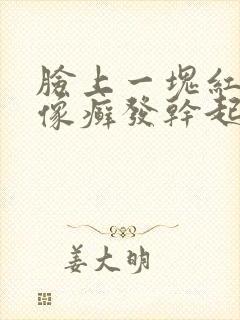 臉上一塊紅
像癬發幹起
姜大明